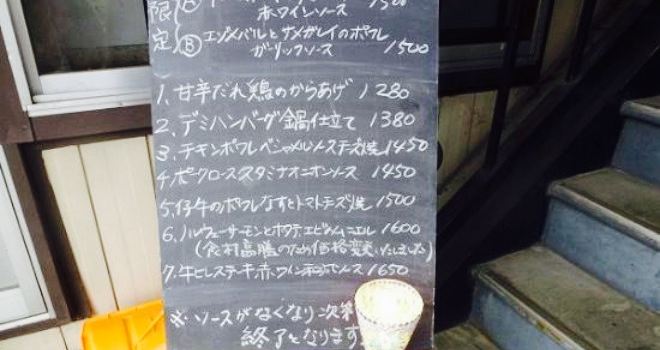 限定
Ⓐ 1500
赤ワインソース
Ⓑ エゾメバルとナメガレイのポワレ
ガーリックソース 1500
1、甘辛だれ鶏のからあげ 1280
2、デミハンバーグ鍋仕立て 1380
3、チキンポワレベシャメルソースチーズ焼 1450
4、ポークローススタミナオニオンソース 1450
5、仔牛のポワレなすとトマトチーズ焼 1500
6、ノルウェーサーモンとホタテエビのムニエル 1600
(食材高騰のため価格変更いたしました)
7、牛ヒレステーキ赤ワインソース 1650
※ソースがなくなり次第
終了となります